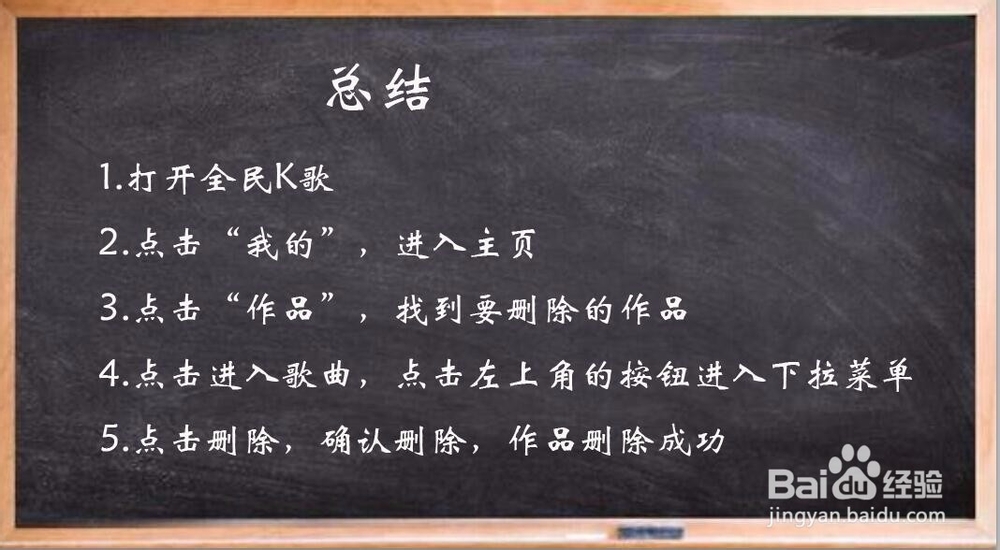 总结
1.打开全民K歌
2.点击“我的”，进入主页
3.点击“作品”，找到要删除的作品
4.点击进入歌曲，点击左上角的按钮进入下拉菜单
5.点击删除，确认删除，作品删除成功
Baidu经验
jingyan.baidu.com